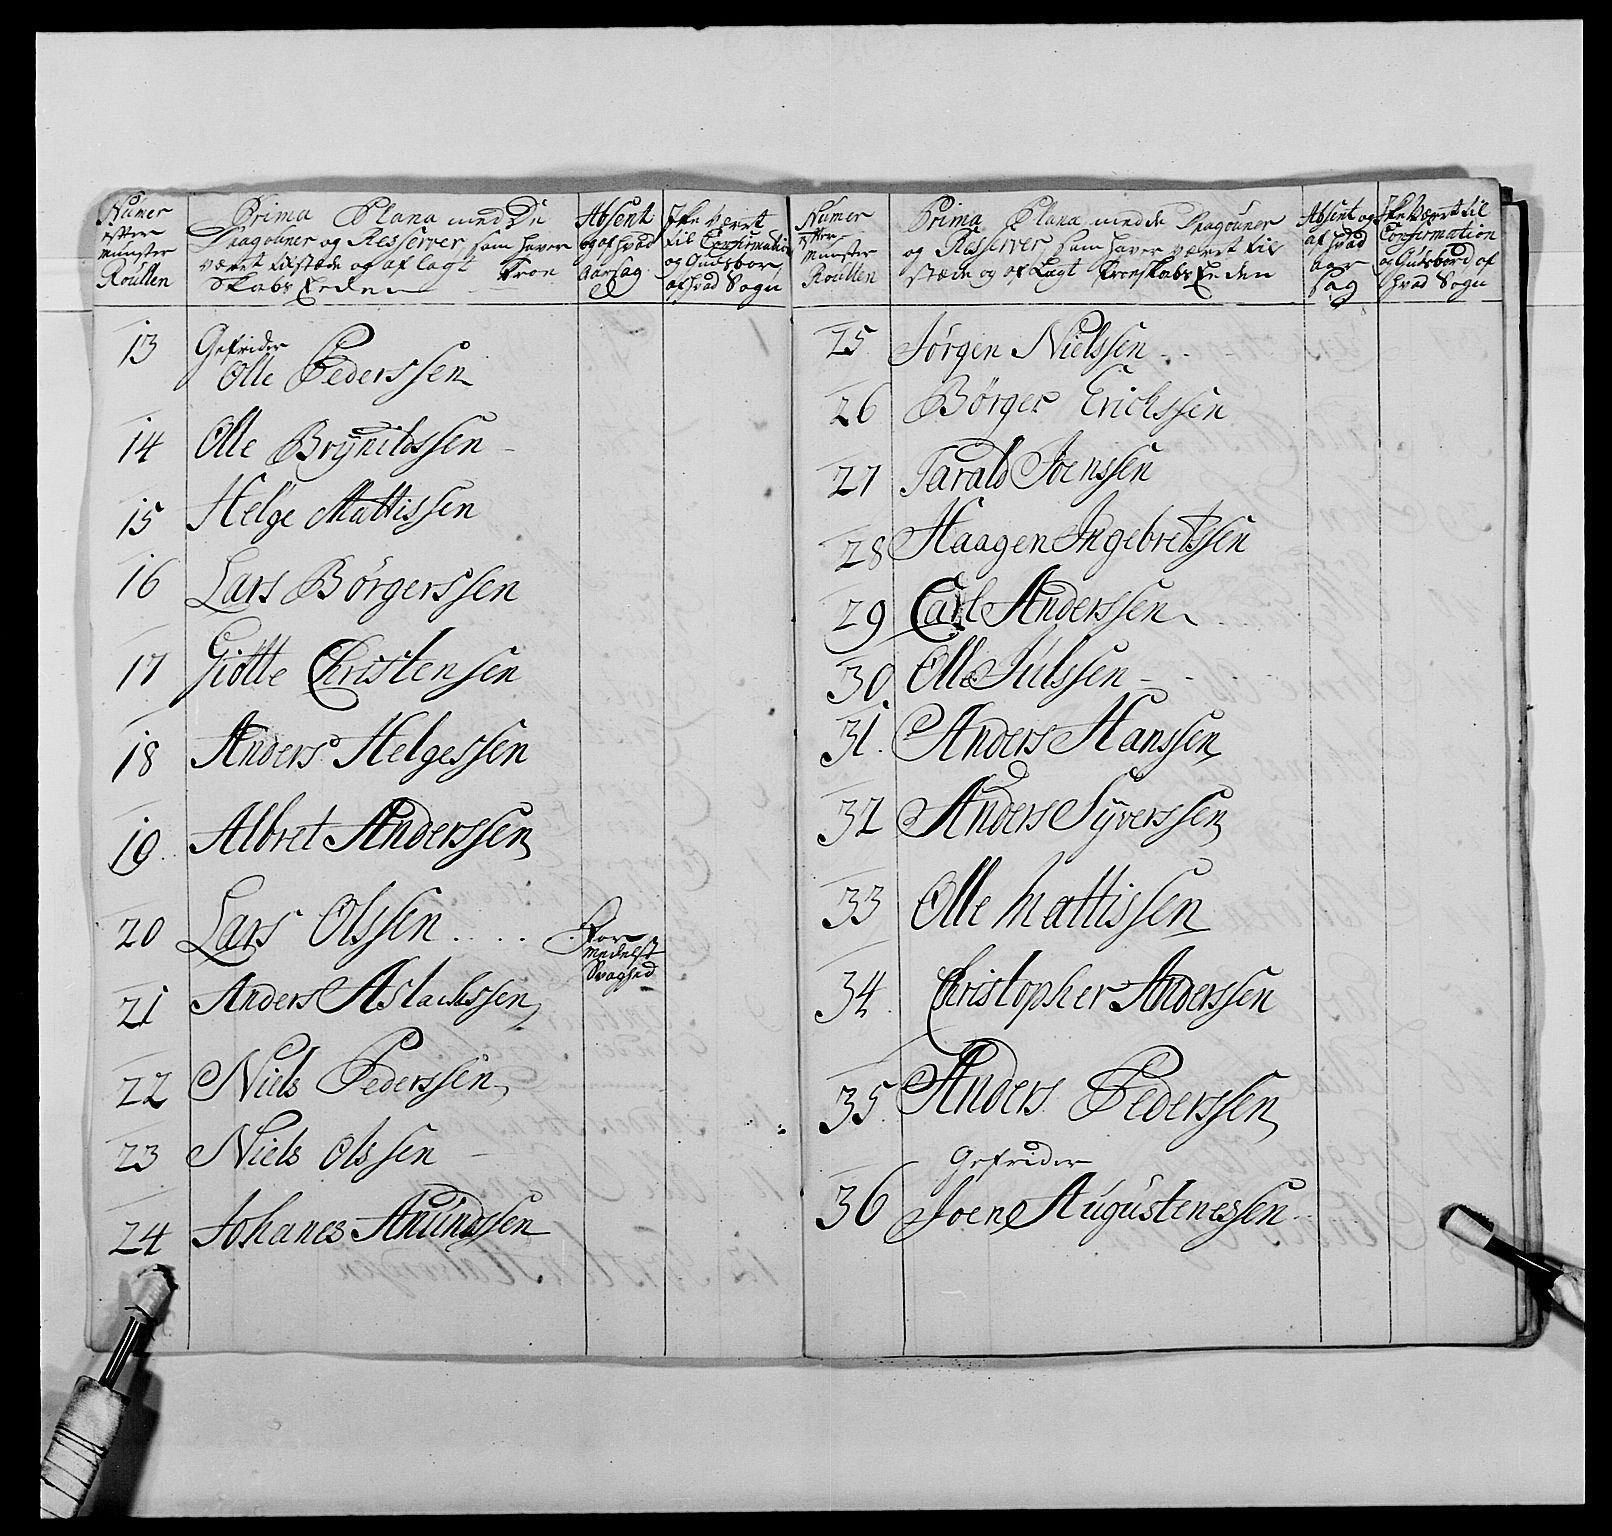 Numer
efter
Munster
Roullen
Prima Plana med De
Dragouner og Resserver som haver
været tilstæde og aflagt Troe
Skabs Eeden
Absent
og af hvad
Aarsag
Ikke været
til Confirmation
og Gudsbord
af hvad Sogn
13 Gefrider
Olle Pederssen
14 Olle Brÿnildssen
15 Helge Mattissen
16 Lars Börgerssen
17 Giötte Christensen
18 Anders Helgessen
19 Albret Anderssen
20 Lars Olssen
For
medelst
Svaghed
21 Anders Aslachssen
22 Niels Pederssen
23 Niels Olssen
24 Johanes Amundssen
Numer
efter
Munster
Roullen
Prima Plana med de Dragouner
og Resserver som haver været til
stæde og aflagt Troeskabs Eeden
Absent og
af hvad
Aar
sag
Ikke Været til
Confirmation
og Gudsbord af
hvad Sogn
25 Jörgen Nielssen
26 Börger Erichssen
27 Tarald Joenssen
28 Haagen Ingebretssen
29 Carl Anderssen
30 Olle Julssen
31 Anders Hanssen
32 Anders Sÿverssen
33 Olle Mattissen
34 Christopher Anderssen
35 Anders Pederssen
Gefrider
36 Joen Augustenessen